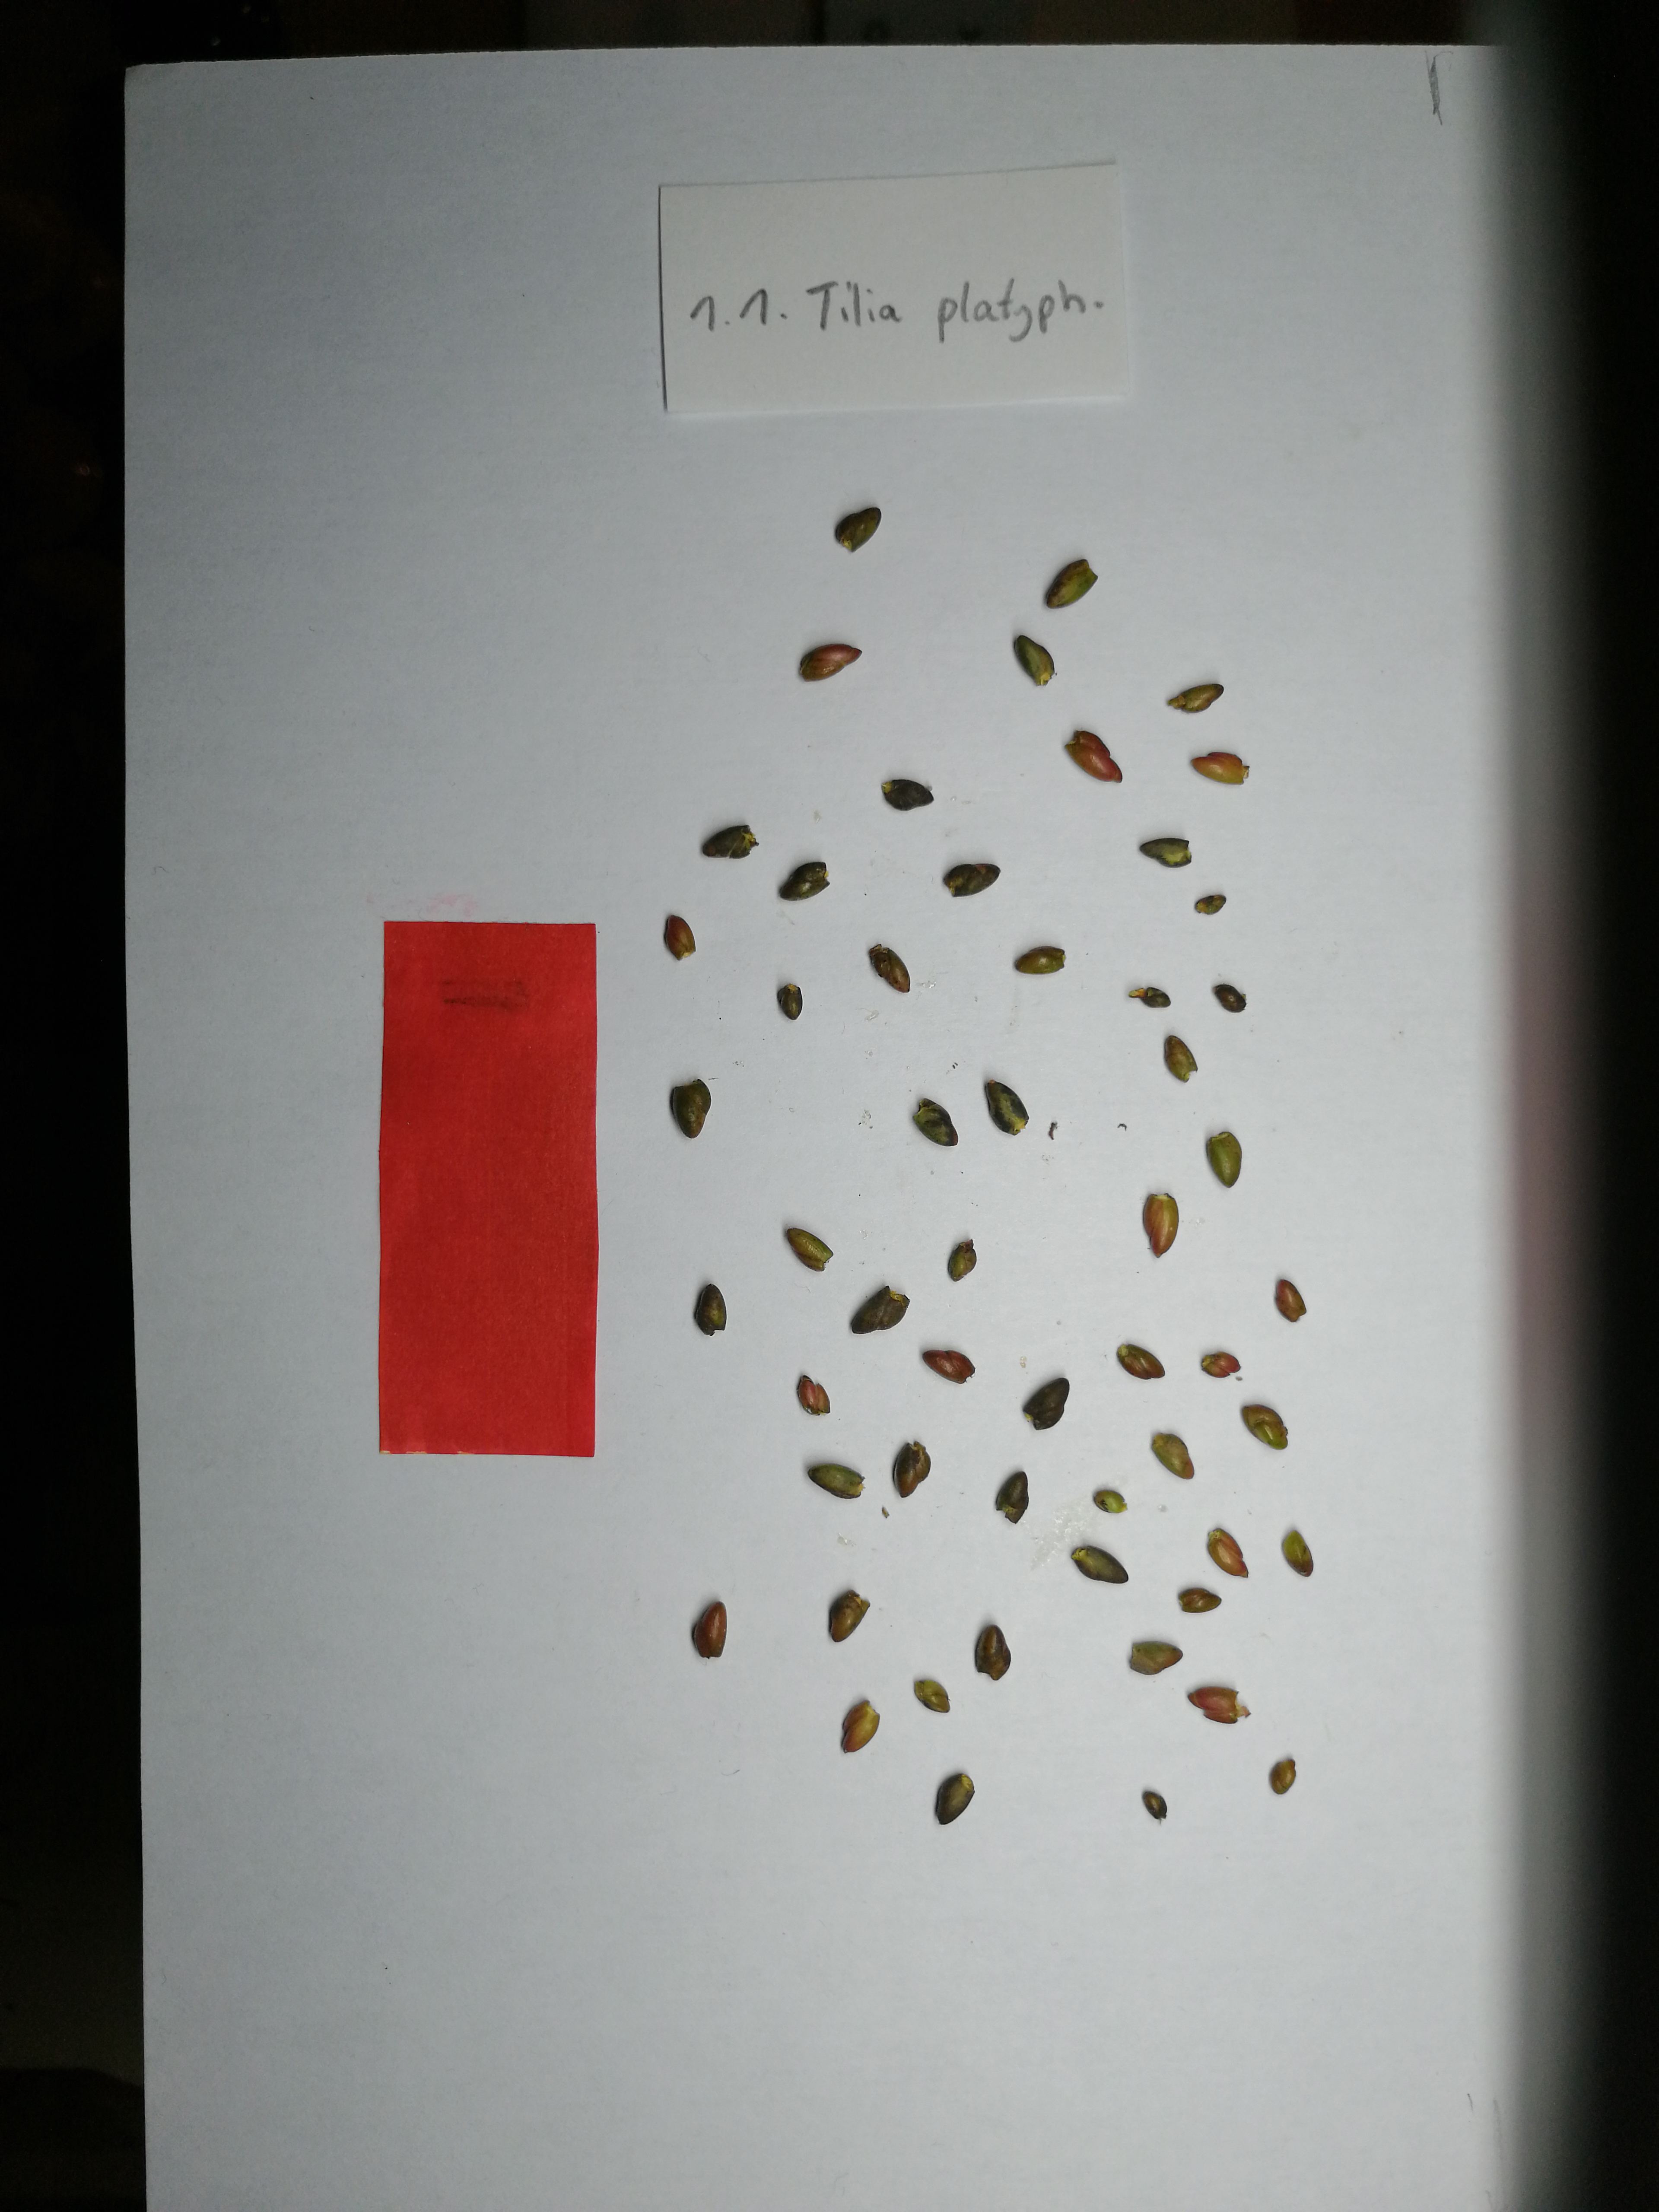 1.1. Tilia platyph.